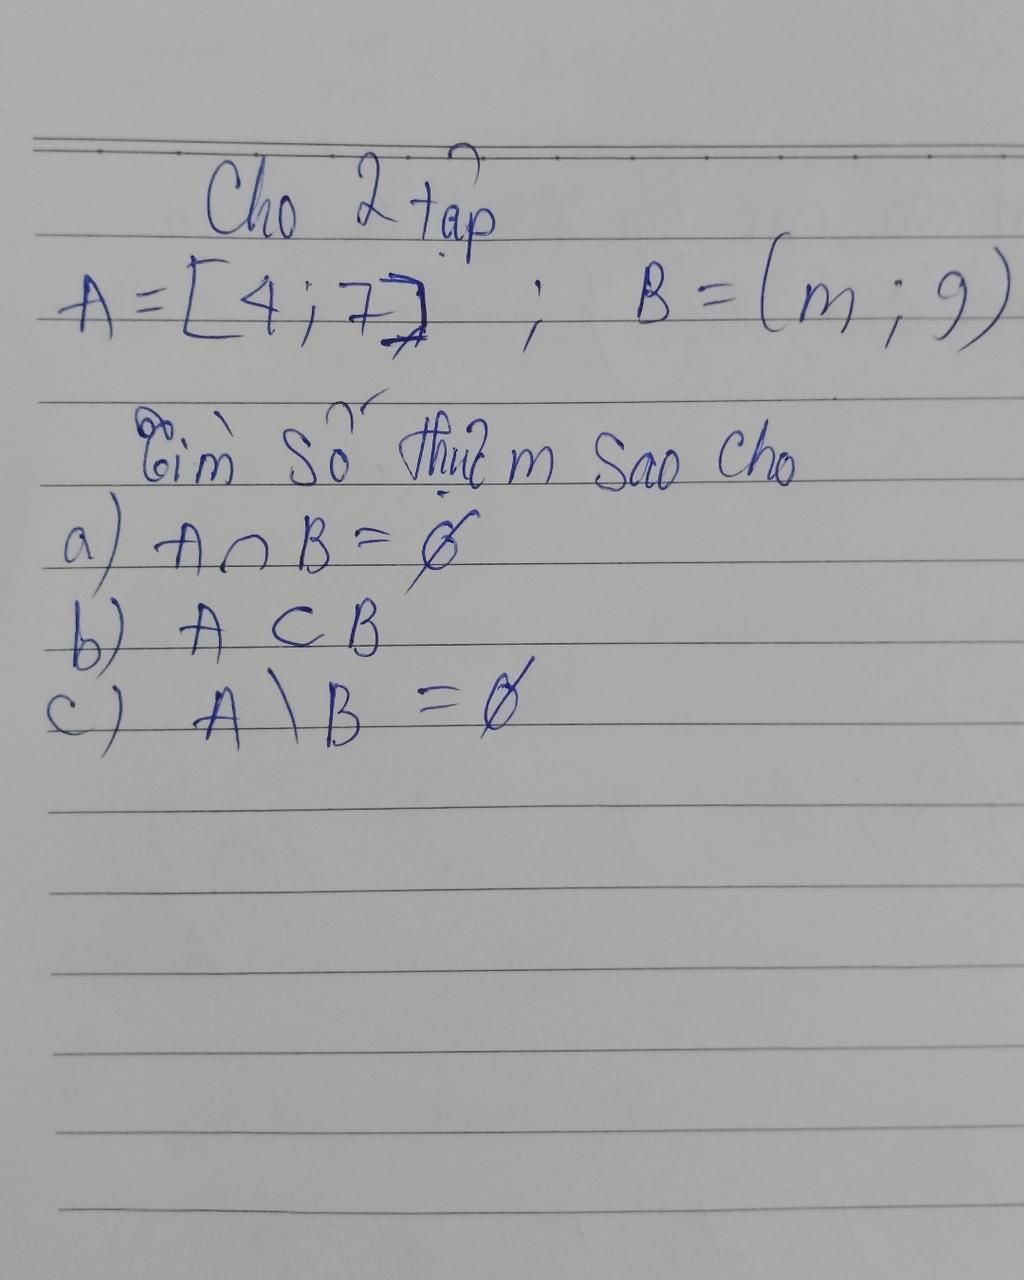 Cho 2 tập
A = [4; 7] ; B = (m; 9)
Tìm số thực m sao cho
a) A ∩ B = ∅
b) A ⊂ B
c) A \ B = ∅